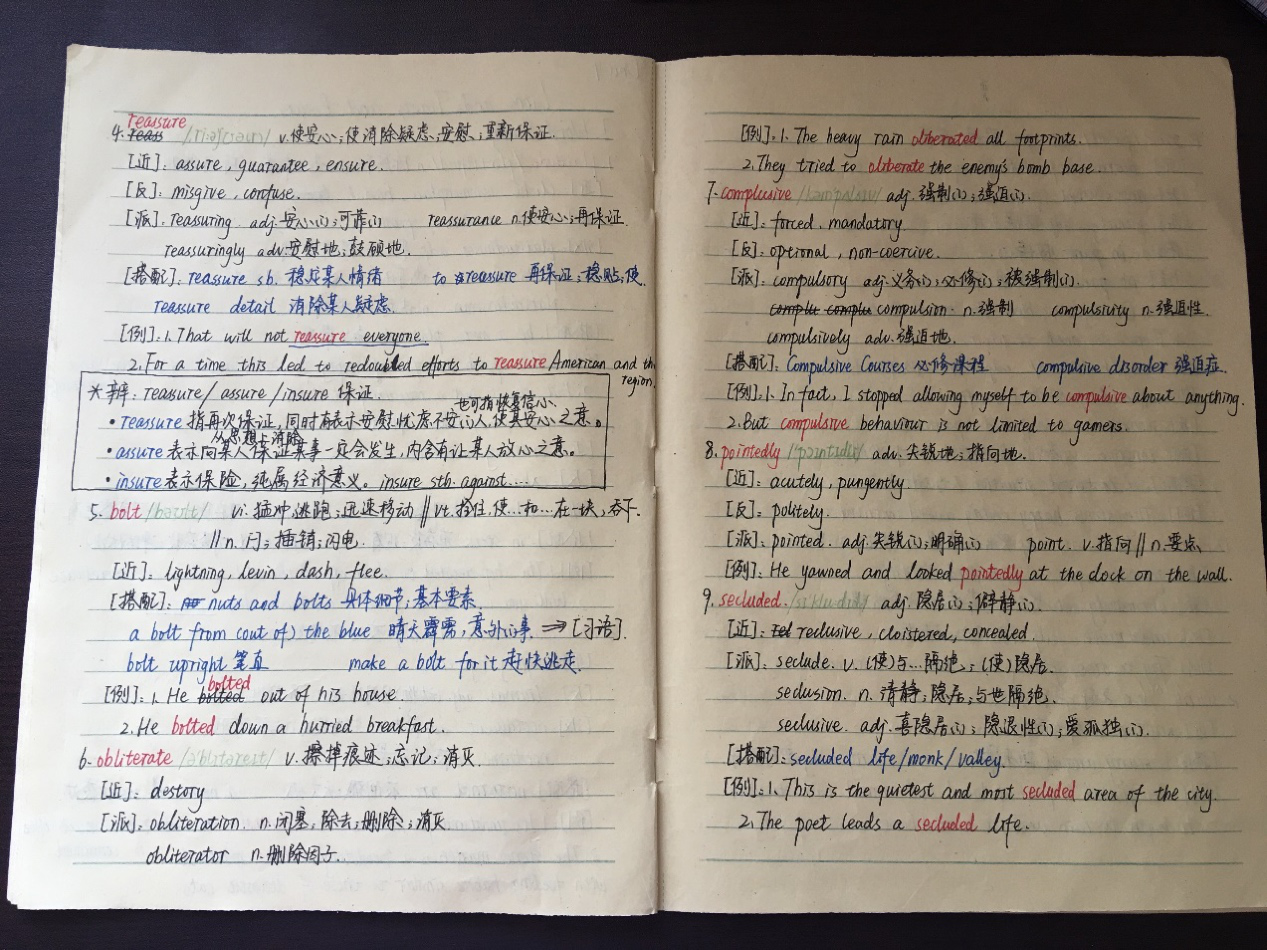 reassure
4. reass /riəʃʊə(r)/ v.使安心;使消除疑虑;安慰;重新保证.
[近]: assure, guarantee, ensure.
[反]: misgive, confuse.
[派]: reassuring adj.安心的;可靠的 reassurance n.使安心;再保证.
reassuringly adv.安慰地;鼓硕地.
[搭配]: reassure sb. 稳定某人情绪 to reassure 再保证;稳贴;使
reassure detail 消除某人疑虑.
[例]: 1. That will not reassure everyone.
2. For a time this led to redoubled efforts to reassure American and the
region.
*辨: reassure/assure/insure 保证.
也可指恢复信心.
•reassure 指再次保证,同时有表示安慰忧虑不安的人,使其安心之意。
从思想上消除
•assure 表示向某人保证某事一定会发生,内含有让某人放心之意。
•insure 表示保险,纯属经济意义。insure sth. against....
5. bolt /bəʊlt/ vi.猛冲,逃跑;迅速移动//vt.拴住,使...和...在一块,吞下.
//n.闩;插销;闪电.
[近]: lightning, levin, dash, flee.
[搭配]: nuts and bolts 具体细节;基本要素.
a bolt from (out of) the blue 晴天霹雳,意外的事 ⇒[习语].
bolt upright 笔直 make a bolt for it 赶快逃走.
bolted
[例]: 1. He bolted out of his house.
2. He bolted down a hurried breakfast.
6. obliterate /ə'blɪtəreɪt/ v.擦掉痕迹;忘记;消灭.
[近]: destory
[派]: obliteration. n.闭塞,除去;删除;消灭
obliterator n.删除因子.
[例]: 1. The heavy rain obliberated all footprints.
2. They tried to obliberate the enemy's bomb base.
7. complusive /kəmˈpʌlsɪv/ adj.强制的;强迫的.
[近]: forced, mandatory
[反]: optional, non-coercive.
[派]: compulsory adj.义务的;必修的;被强制的.
complu complu compulsion. n.强制 compulsivity n.强迫性.
compulsively adv.强迫地.
[搭配]: Compulsive Courses 必修课程 compulsive disorder 强迫症.
[例]: 1. In fact, I stopped allowing myself to be compulsive about anything.
2. But compulsive behaviour is not limited to gamers.
8. pointedly /'pɔɪntɪdlɪ/ adv.尖锐地;指向地.
[近]: acutely, pungently
[反]: politely.
[派]: pointed. adj.尖锐的;明确的 point. v.指向//n.要点
[例]: He yawned and looked pointedly at the clock on the wall.
9. secluded. /sɪkluːdɪd/ adj.隐居的;僻静的.
[近]: reclusive, cloistered, concealed.
[派]: seclude. v.(使)与...隔绝;(使)隐居.
seclusion. n.清静;隐居;与世隔绝.
seclusive. adj.喜隐居的;隐退性的;爱孤独的.
[搭配]: secluded life/monk/valley.
[例]: 1. This is the quietest and most secluded area of the city.
2. The poet leads a secluded life.